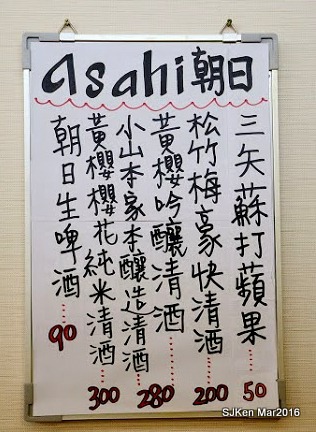 asahi朝日
三矢蘇打蘋果……50
松竹梅豪快清酒……200
黃櫻吟釀清酒……280
小山本家本釀造清酒
黃櫻櫻花純米清酒……300
朝日生啤酒……90
SJKen Mar2016